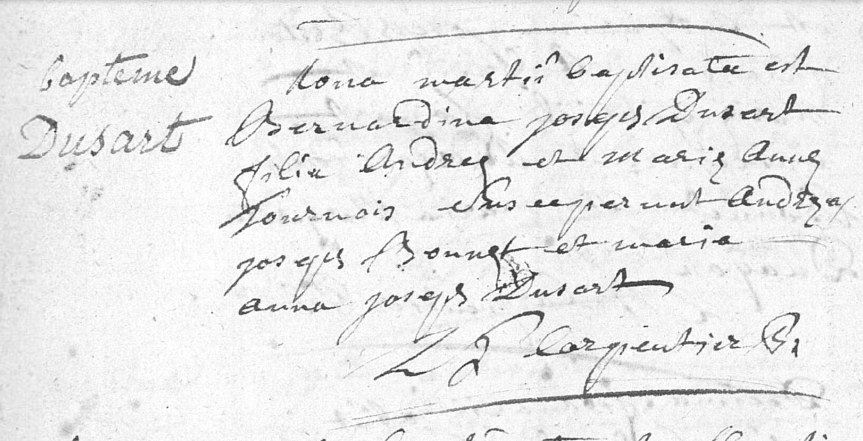 bapteme
Dusart
nona martii baptisata est
Bernardina joseph Dusart
filia Andreę et marię Annę
Tournois susceperunt Andreas
joseph Bonnet et maria
anna joseph Dusart
Carpentier